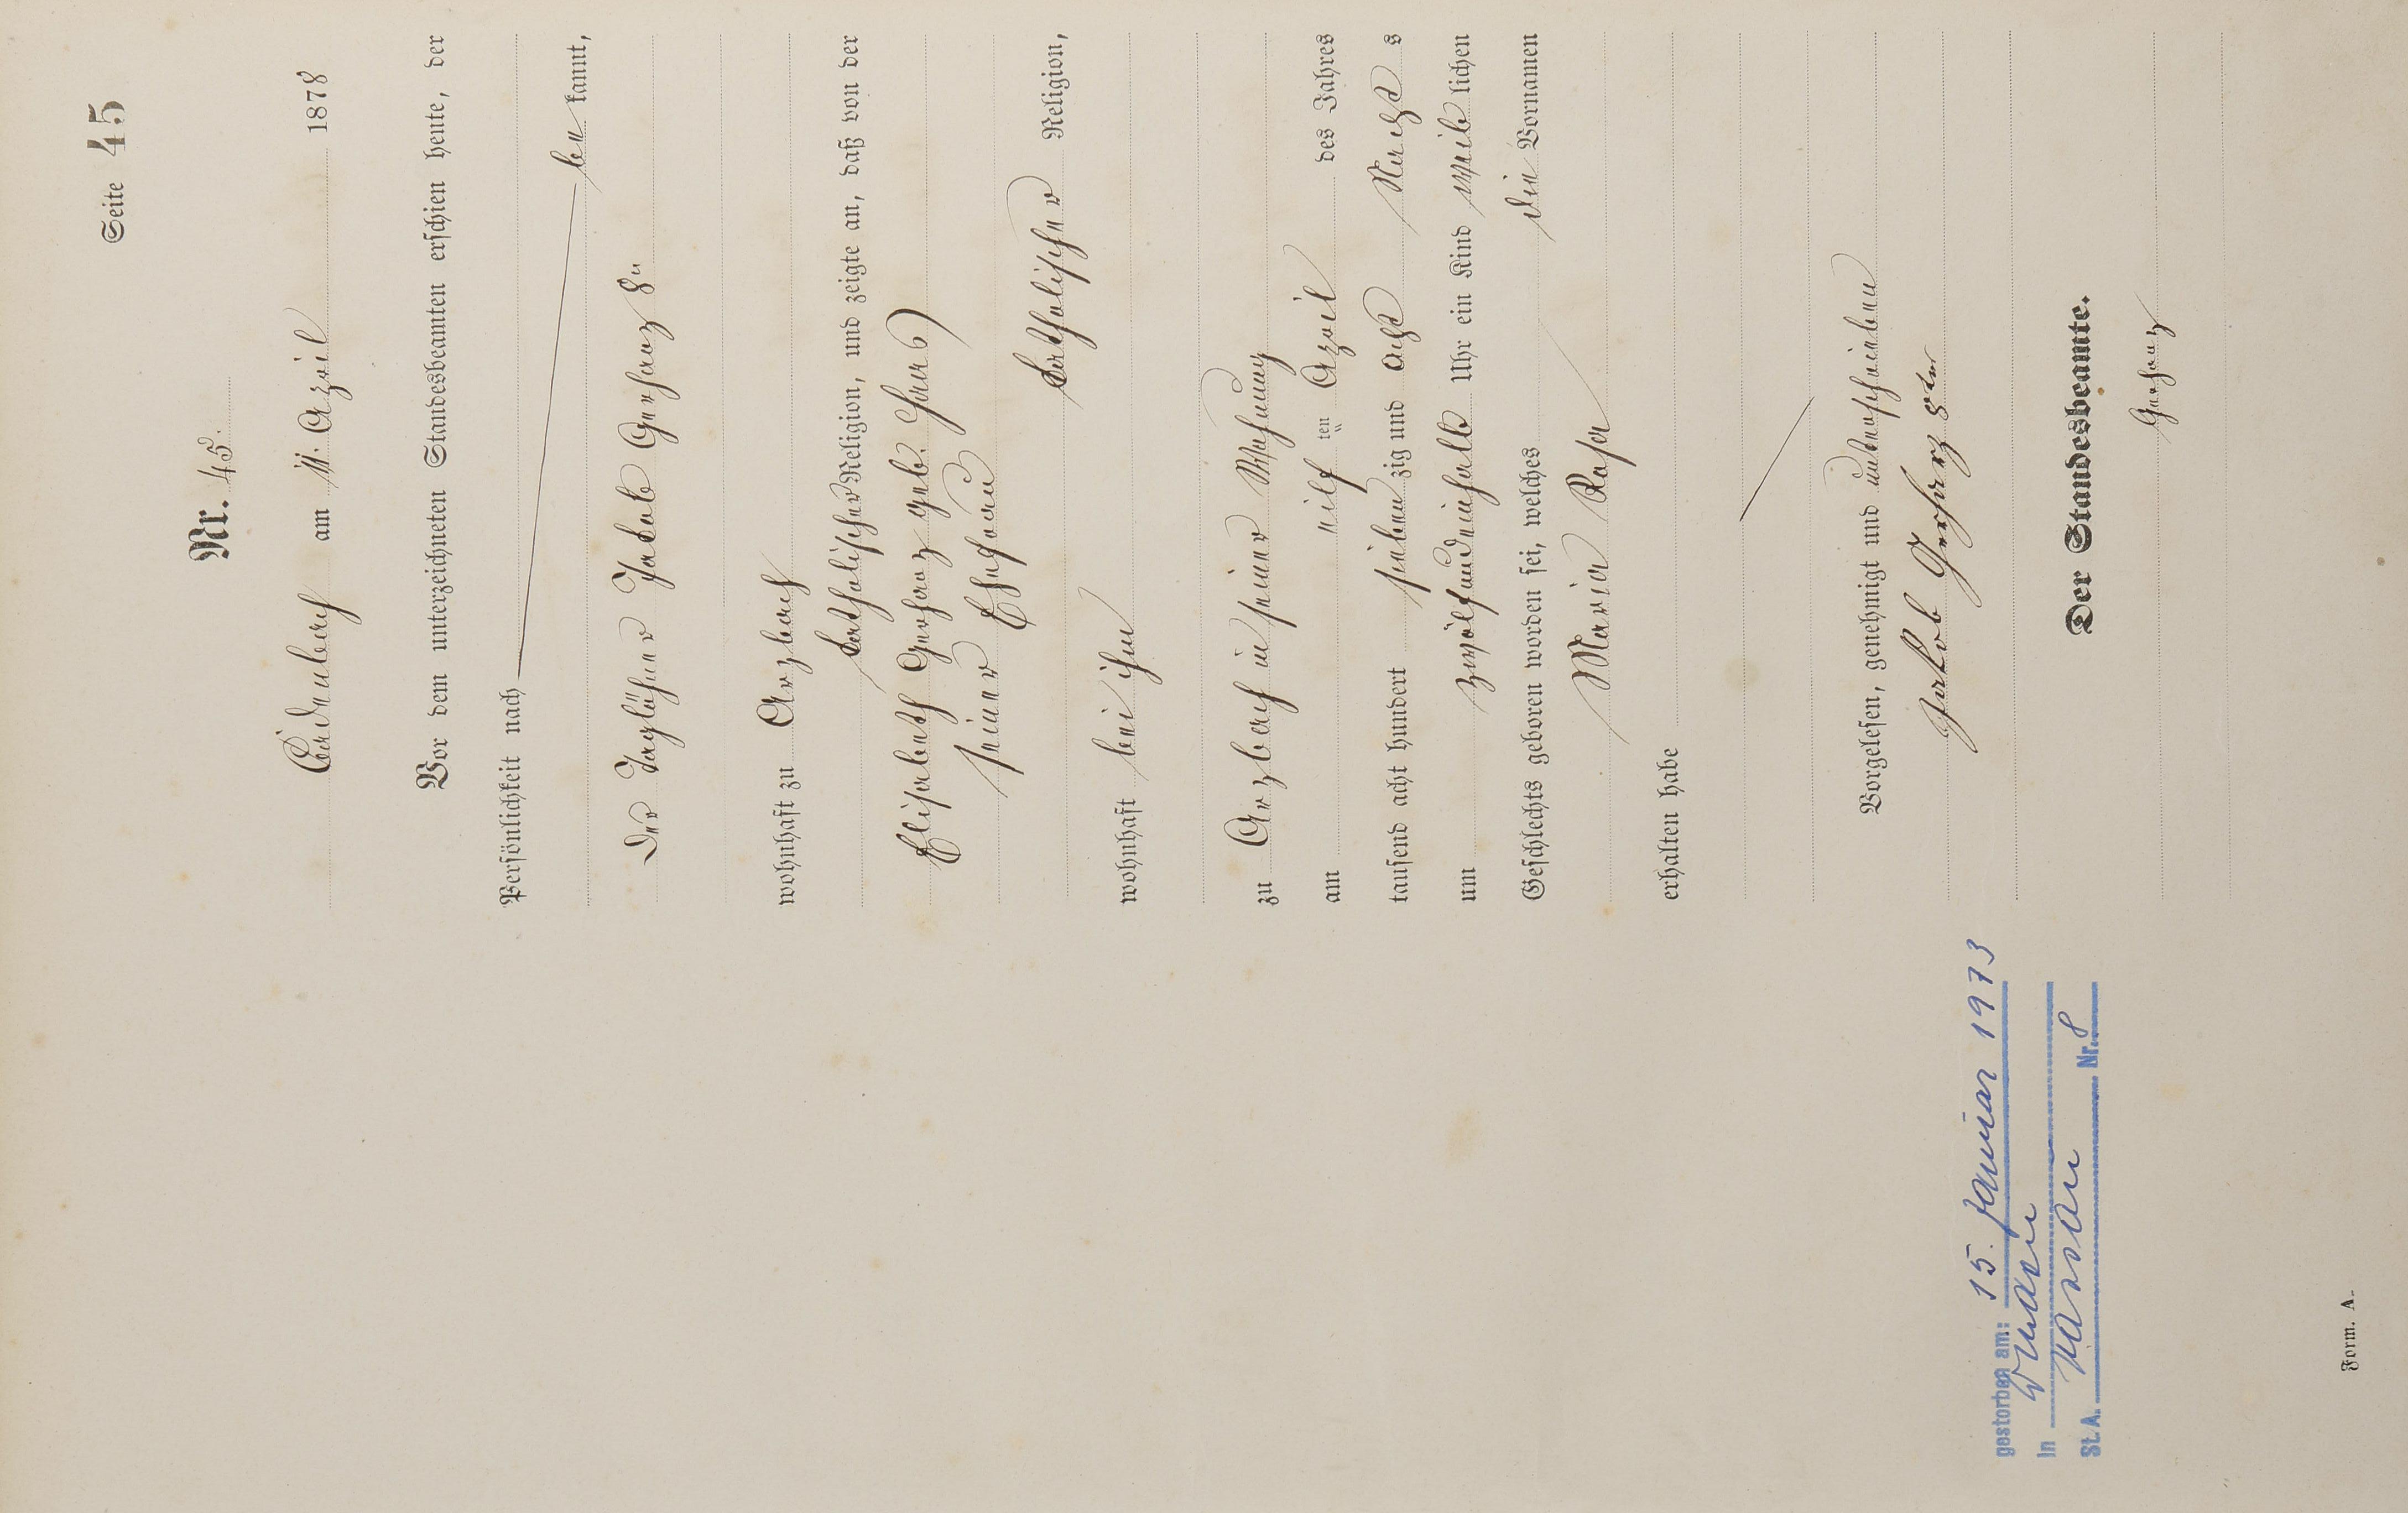 Seite 45
Nr. 45.
Cadenbach am 11. April 1878
Vor dem unterzeichneten Standesbeamten erschien heute, der
Persönlichkeit nach
be kannt,
der Taglöhner Jakob Gerharz 8r
wohnhaft zu Arzbach
katholischer Religion, und zeigte an, daß von der
Elisabeth Gerharz geb.
seiner Ehefrau
katholischer Religion,
wohnhaft bei ihm
zu Arzbach in seiner Wohnung
am eilf ten April des Jahres
tausend acht hundert sieben zig und acht Nacht s
um zwölfundeinhalb Uhr ein Kind weib lichen
Geschlechts geboren worden sei, welches die Vornamen
Maria Rosa
erhalten habe
Vorgelesen, genehmigt und unterschrieben
Jakob Gerharz 8ter
Der Standesbeamte.
Gerharz
gestorben am: 15. Januar 1973
in Nassau
St.A. Nassau Nr. 8
Form. A.